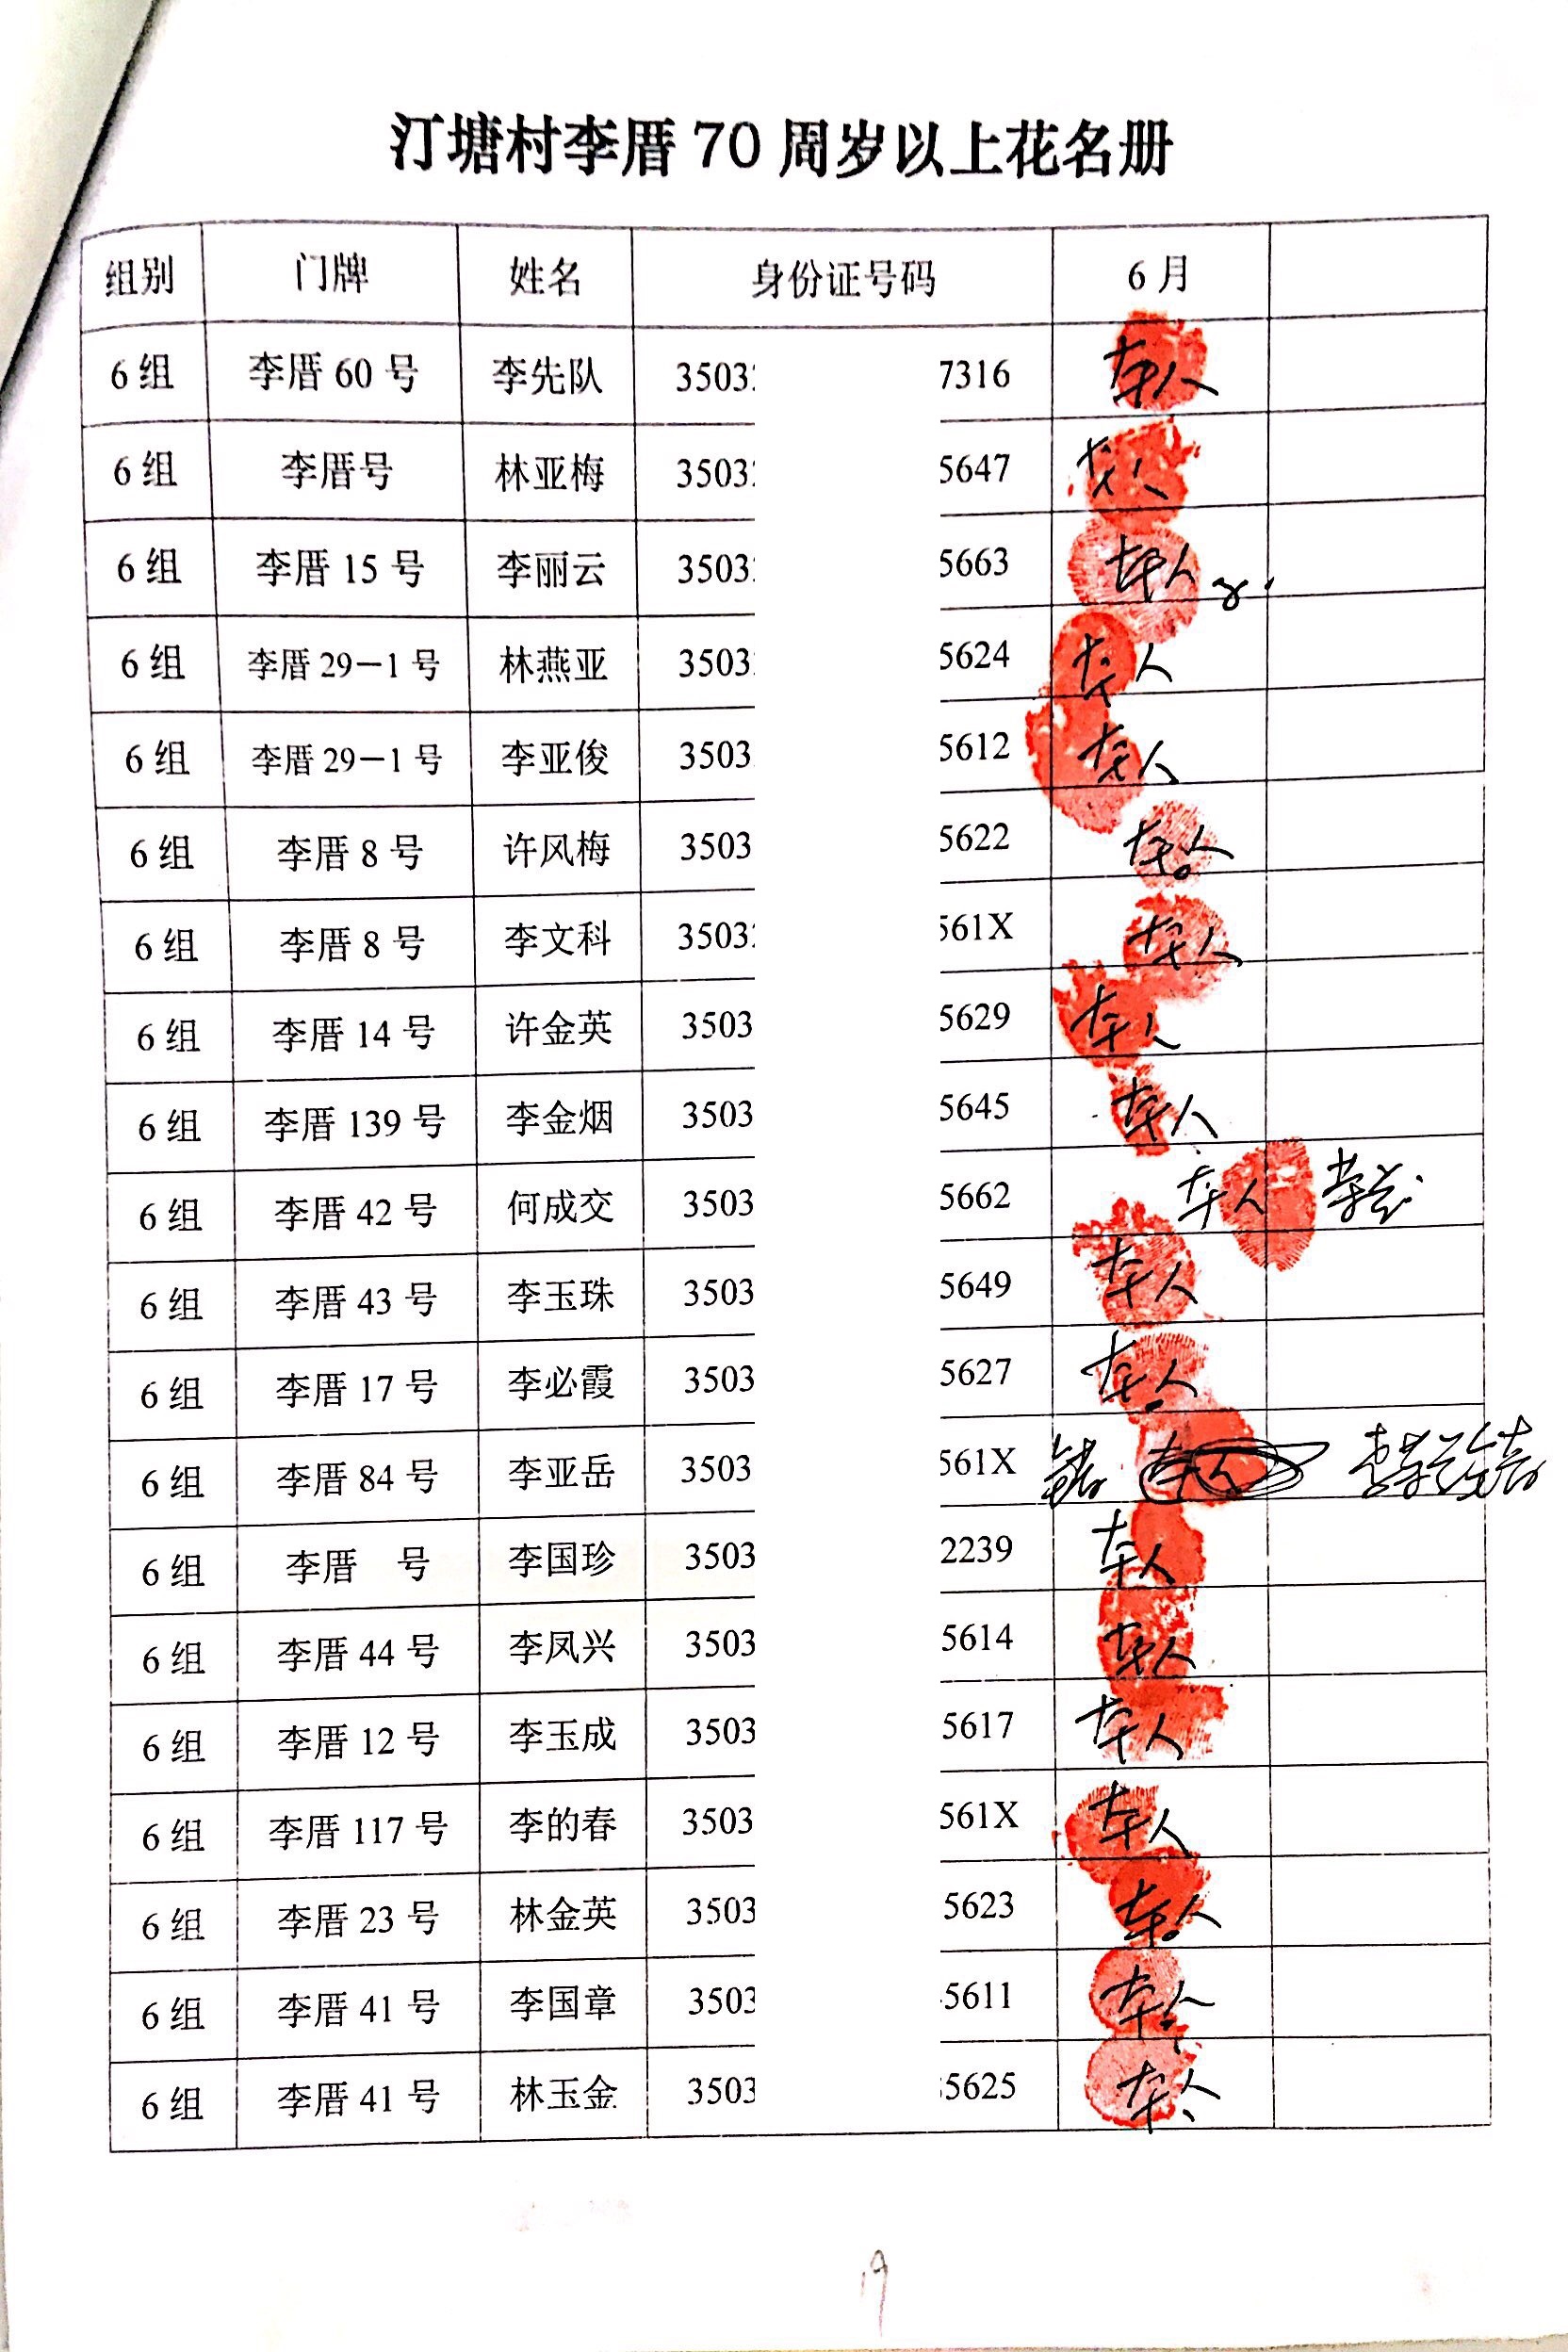 汀塘村李厝70周岁以上花名册
组别 门牌 姓名 身份证号码 6月
6组 李厝60号 李先队 3503 7316 本人
6组 李厝号 林亚梅 3503 5647
6组 李厝15号 李丽云 3503 5663 本人
6组 李厝29－1号 林燕亚 3503 5624 本人
6组 李厝29－1号 李亚俊 3503 5612 本人
6组 李厝8号 许风梅 3503 5622 本人
6组 李厝8号 李文科 3503 561X 本人
6组 李厝14号 许金英 3503 5629 本人
6组 李厝139号 李金烟 3503 5645 本人
6组 李厝42号 何成交 3503 5662 本人
6组 李厝43号 李玉珠 3503 5649 本人
6组 李厝17号 李必霞 3503 5627 本人
6组 李厝84号 李亚岳 3503 561X
6组 李厝 号 李国珍 3503 2239 本人
6组 李厝44号 李凤兴 3503 5614 本人
6组 李厝12号 李玉成 3503 5617 本人
6组 李厝117号 李的春 3503 561X 本人
6组 李厝23号 林金英 3503 5623 本人
6组 李厝41号 李国章 3503 5611 本人
6组 李厝41号 林玉金 3503 5625 本人
19